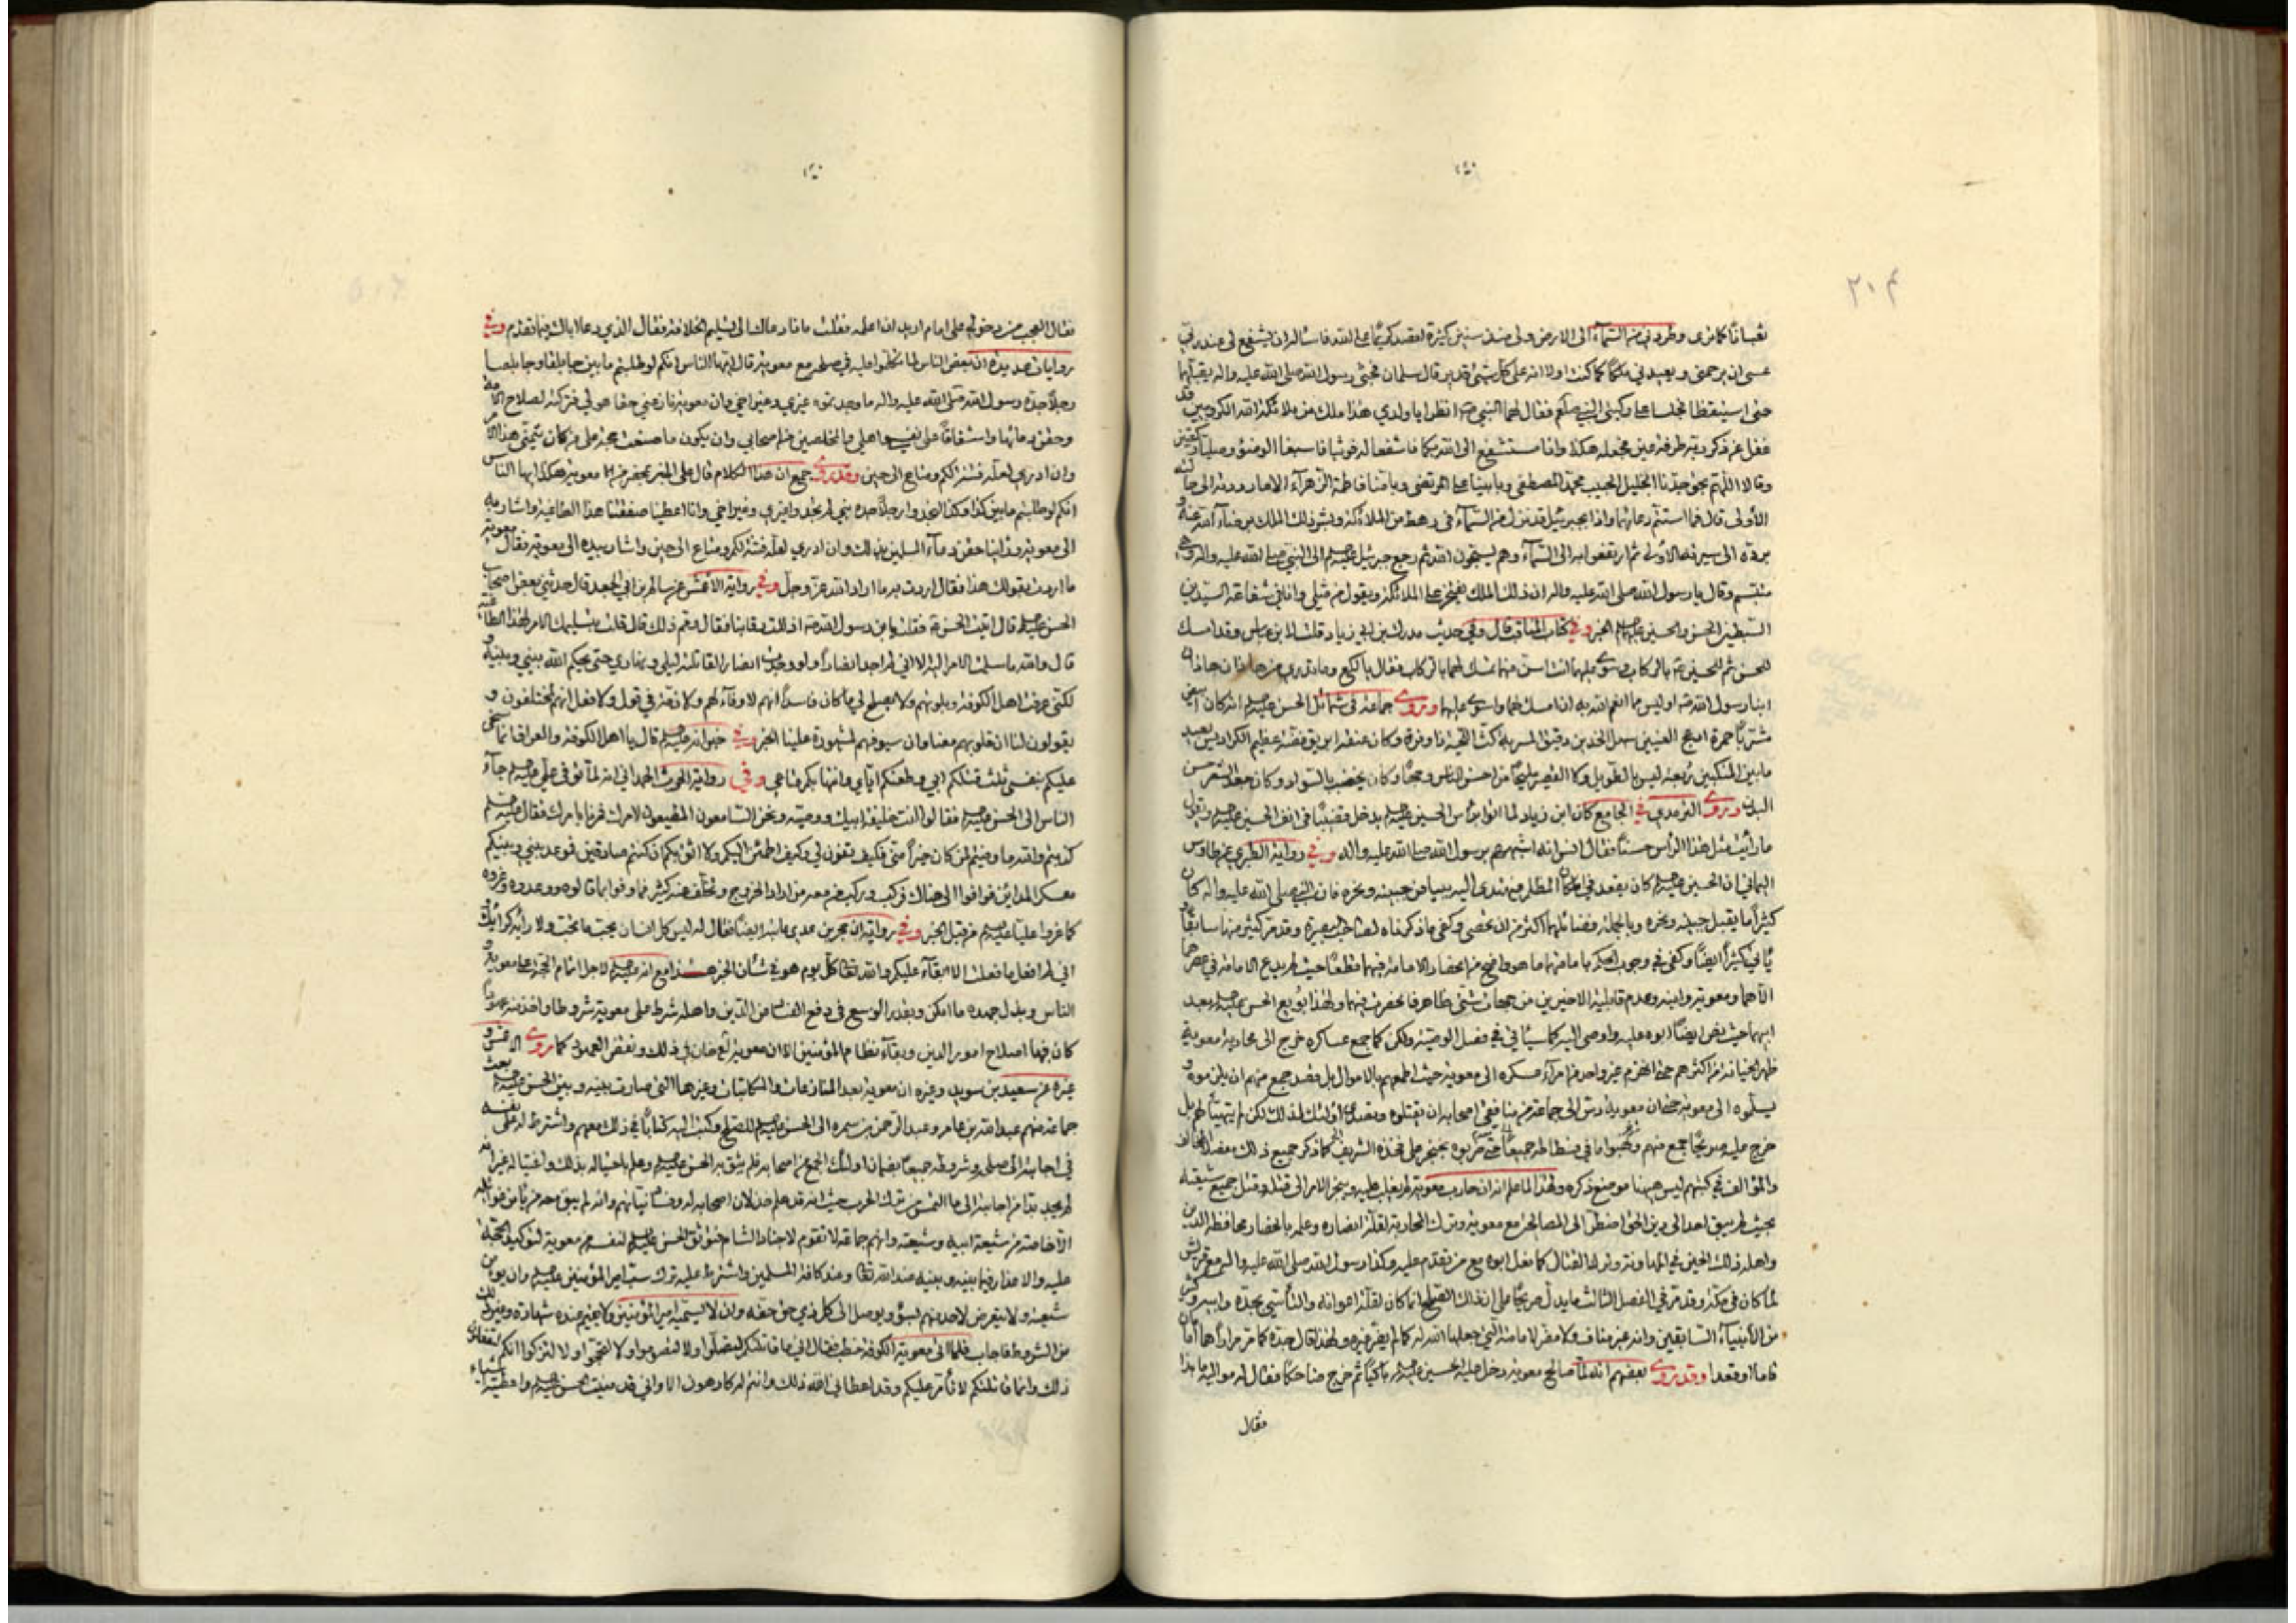 ٢٠٤
ثعبانًا كما ترى وطردني من السماء الى الارض ولي منذ سنين كثيرة اقصد كريمًا على الله فاسأله ان يشفع لي عند ربي
عسى ان يرحمني ويعيدني ملكًا كما كنت اولا انه على كل شيء قدير قال سلمان فجثى رسول الله صلى الله عليه واله يقبلهما
حتى استيقظا فجلسا على ركبتي النبي صلعم فقال لهما النبي ص انظرا يا ولدي هذا ملك من ملائكة الله الكروبيين قد
غفل عن ذكر ربه طرفة عين فجعله هكذا وانا مستشفع الى الله بكما فاشفعا له فوثبا فاسبغا الوضوء وصليا ركعتين
وقالا اللهم بحق جدنا الجليل الحبيب محمد المصطفى وبابينا علي المرتضى وبامنا فاطمة الزهراء الا ما رددته الى حالته
الأولى قال فما استتم دعاؤهما واذا بجبرئيل قد نزل من السماء في رهط من الملائكة وبشر ذلك الملك برضاء الله عنه و
برده الى سيرته الاولى ثم ارتفعوا به الى السماء وهم يسبحون الله ثم رجع جبرئيل الى النبي صلى الله عليه واله وهو
متبسم وقال يا رسول الله صلى الله عليه واله ان ذلك الملك يفتخر على الملائكة ويقول من مثلي وانا في شفاعة السيدين
السبطين الحسن والحسين الخبر وفي كتاب المناقب قال وفي حديث مدرك بن ابي زياد قلت لابن عباس وقد امسك
للحسن ثم للحسين بالركاب وسوى عليهما انت اسن منهما تمسك لهما بالركاب فقال يا لكع وما تدري من هذان هذان
ابنا رسول الله ص اوليس مما انعم الله به ان امسك لهما واسوي عليهما وروى جماعة في شمائل الحسن انه كان ابيض
مشربًا حمرة ادعج العينين سهل الخدين دقيق المسربة كث اللحية ذا وفرة وكان عنقه ابريق فضة عظيم الكراديس بعيد
ما بين المنكبين ربعة ليس بالطويل ولا القصير مليحًا من احسن الناس وجهًا وكان يخضب بالسواد وكان جعد الشعر حسن
البدن وروى الترمذي في الجامع كان ابن زياد لما اتوا برأس الحسين يدخل قضيبًا في انف الحسين ويقول
ما رأيت مثل هذا الرأس حسنًا فقال انس انه اشبههم برسول الله صلى الله عليه واله وفي رواية الطبري عن طاوس
اليماني ان الحسين كان يقعد في المكان المظلم فيهتدى اليه ببياض جبينه ونحره فان النبي صلى الله عليه واله كان
كثيرًا ما يقبل جبينه ونحره وبالجملة وفضائلهما اكثر من ان تحصى وكفى ما ذكرناه لصاحب بصيرة وقد مر كثير منها سابقًا و
يأتي كثيرًا ايضًا وكفى في وجوب الحكم بامامتهما ما هو واضح من انحصار الامامة فيهما قطعًا حيث لم يدع الامامة في عصرهما
الا هما ومعوية وابنه وعدم قابلية الاخيرين من جهات شتى ظاهر فانحصرت فيهما ولهذا بويع الحسن بعد
ابيهما حيث نص ايضًا ابوه عليه واوصى اليه كما سيأتي في فصل الوصية ولكن كما جمع عساكره خرج الى محاربة معوية
ظهر الخيانة من اكثرهم حتى انهزم غير واحد من امراء عسكره الى معوية حيث اطمعهم بالاموال بل قصد جمع منهم ان يلزموه و
يسلموه الى معوية حتى ان معوية دس الى جماعة من منافقي اصحابه ان يقتلوه لكن لم يتهيأ لهم بل
خرج عليه صريحًا جمع منهم ونهبوا ما في فسطاطه جميعًا حتى ضربوه بخنجر على فخذه الشريف كما ذكر جميع ذلك مفصلا المخالف
والمؤالف في كتبهم ليس ههنا موضع ذكره ولهذا لما علم انه ان حارب معوية لم يغلب عليه وينجر الامر الى قتله وقتل جميع شيعته
بحيث لم يبق احد الى دين الحق اضطر الى المصالحة مع معوية وترك المحاربة لقلة انصاره وعلمه بانحصار محافظة الدين
واهله ذلك الحين في المهادنة وترك القتال كما فعل ابوه مع من تقدم عليه وكذا رسول الله صلى الله عليه واله مع قريش
لما كان في مكة وقد مر في الفصل الثالث ما يدل صريحًا على ان ذلك الصلح انما كان لقلة اعوانه والتأسي بجده وابيه وكثير
من الأنبياء السابقين وانه غير مناف ولا مضر لامامته التي جعلها الله له كما لم يضر غيره ولهذا قال جده كما مر مرارًا هما امامان
قاما او قعدا وقد روى بعضهم انه لما صالح معوية دخل عليه الحسين باكيًا ثم خرج ضاحكًا فقال له مواليه ما هذا
فقال
فقال العجب من دخولي على امام اريد ان اعلمه فقلت ماذا دعاك الى تسليم الخلافة فقال الذي دعا اباك فيما تقدم وفي
روايات عديدة ان بعض الناس لما تكلموا عليه في صلحه مع معوية قال ايها الناس انكم لو طلبتم ما بين جابلقا وجابلصا
رجلًا جده رسول الله صلى الله عليه واله ما وجدتموه غيري وغير اخي وان معوية نازعني حقا هو لي فتركته لصلاح الامة
وحقن دمائها واشفاقًا على نفسي واهلي والمخلصين من اصحابي وان يكون ما صنعت حجة على من كان يتمنى هذا الامر
وان ادري لعله فتنة لكم ومتاع الى حين وقد روى جمع ان هذا الكلام قال على المنبر بمحضر من معوية هكذا ايها الناس
انكم لو طلبتم ما بين كذا وكذا لتجدوا رجلًا جده نبي لم تجدوا غيري وغير اخي وانا اعطينا صفقتنا هذا الطاغية واشار بيده
الى معوية ورأينا حقن دماء المسلمين وان ادري لعله فتنة لكم ومتاع الى حين واشار بيده الى معوية فقال معوية
ما اردت بقولك هذا فقال اردت به ما اراد الله عز وجل وفي رواية الاعمش عن سالم بن ابي الجعد قال حدثني بعض اصحاب
الحسن قال اتيت الحسن فقلت يا بن رسول الله ص اذللت رقابنا فقال ومم ذلك قال قلت بتسليمك الامر لهذا الطاغية
قال والله ما سلمت الامر اليه الا اني لم اجد انصارًا ولو وجدت انصارًا لقاتلته ليلي ونهاري حتى يحكم الله بيني وبينه و
لكني عرفت اهل الكوفة وبلوتهم ولا يصلح لي ما كان فاسدًا انهم لا وفاء لهم ولا ذمة في قول ولا فعل انهم لمختلفون و
يقولون لنا ان قلوبهم معنا وان سيوفهم لمشهورة علينا الخبر وفي خبر انه قال يا اهل الكوفة والعراق انما سخي
عليكم بنفسي ثلث قتلكم ابي وطعنكم اياي وانتهابكم متاعي وفي رواية الحرث الهمداني انه لما توفي علي جاء
الناس الى الحسن فقالوا انت خليفة ابيك ووصيه ونحن السامعون المطيعون لامرك فمرنا بامرك فقال
كذبتم والله ما وفيتم لمن كان خيرًا مني فكيف تفون لي وكيف اطمئن اليكم ولا اثق بكم ان كنتم صادقين فموعد بيني وبينكم
معسكر المداين فوافوا الى هناك فركب وركب معه من اراد الخروج وتخلف عنه كثير فما وفوا بما قالوه ووعدوه وغروه
كما غروا عليًا من قبل الخبر وفي رواية ان حجر بن عدي عاتبه ايضًا فقال له ليس كل انسان يحب ما تحب ولا رأيه كرأيك و
اني لم افعل ما فعلت الا ابقاء عليكم والله تعالى كل يوم هو في شأن الخبر هذا مع انه لاجل اتمام الحجة على معوية و
الناس وبذل جهده ما امكن وبقدر الوسع في دفع الفساد من الدين واهله شرط على معوية شروطا واخذ منه عهودًا
كان فيها اصلاح امور الدين وبقاء نظام المؤمنين الا ان معوية خان في ذلك ونقض العهد كما روى الاعمش و
غيره عن سعيد بن سويد وغيره ان معوية بعد المنازعات والمكاتبات وغيرها التي صارت بينه وبين الحسن بعث
جماعة منهم عبد الله بن عامر وعبد الرحمن بن سمرة الى الحسن للصلح وكتب اليه كتابًا في ذلك معهم واشترط له على نفسه
في اجابته الى صلحه وشروطه جميعا فلم يثق به الحسن وعلم باحتياله بذلك واغتياله غير انه
لم يجد بدا من اجابته الى ما التمس من ترك الحرب حيث انه قد علم خذلان اصحابه له وفساد نياتهم وانه لم يبق معه من يأمن غوائله
الا خاصته من شيعة ابيه وشيعته وانهم جماعة لا تقوم لاجناد الشام فتوثق الحسن لنفسه من معوية لتوكيد الحجة
عليه والاعذار فيما بينه وبينه عند الله تعالى وعند كافة المسلمين واشترط عليه ترك سب امير المؤمنين وان يؤمن
شيعته ولا يتعرض لاحد منهم بسوء ويوصل الى كل ذي حق حقه وان لا يسميه امير المؤمنين ولا يقيم عنده شهادة وغير ذلك
من الشروط فاجاب فلما اتى معوية الكوفة خطب فقال اني ما قاتلتكم لتصلوا ولا لتصوموا ولا لتحجوا ولا لتزكوا انكم لتفعلون
ذلك وانما قاتلتكم لأتأمر عليكم وقد اعطاني الله ذلك وانتم له كارهون الا واني قد منيت الحسن واعطيته اشياء